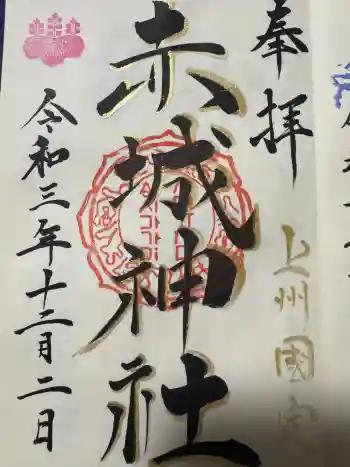 奉拝
上州國定
赤城神社
令和三年十二月二日